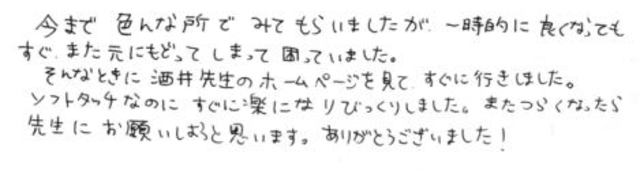 今まで 色んな所で みてもらいましたが、一時的に 良くなっても
すぐ、また元にもどって しまって 困っていました。
そんなときに 酒井先生のホームページを見て、すぐに行きました。
ソフトタッチなのに すぐに楽になりびっくりしました。またつらくなったら
先生に お願いしようと思います。ありがとうございました!